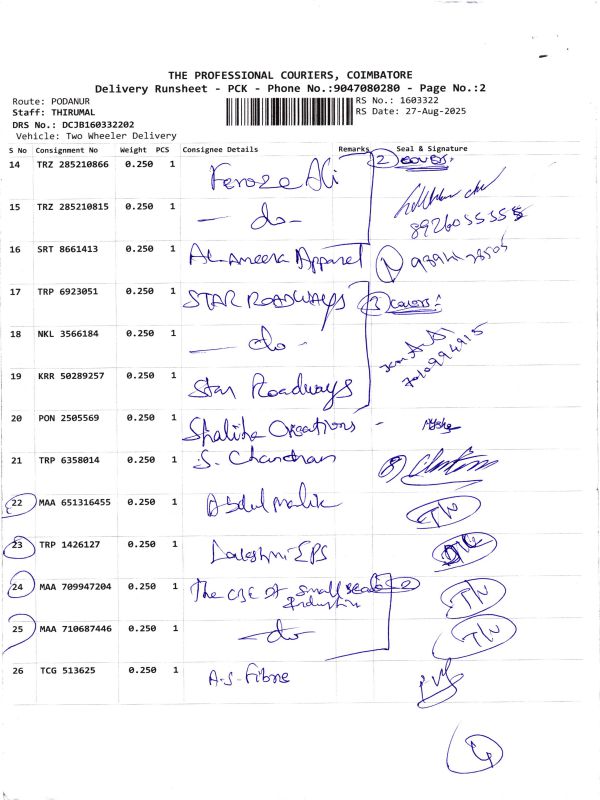 THE PROFESSIONAL COURIERS, COIMBATORE
Delivery Runsheet - PCK - Phone No.:9047080280 - Page No.:2
Route: PODANUR
Staff: THIRUMAL
DRS No.: DCJB160332202
Vehicle: Two Wheeler Delivery
RS No.: 1603322
RS Date: 27-Aug-2025
S No Consignment No Weight PCS Consignee Details Remarks Seal & Signature
14 TRZ 285210866 0.250 1 Feroze Ali 2 covers:
15 TRZ 285210815 0.250 1 - do -
16 SRT 8661413 0.250 1 Al-Ameera Apparel
17 TRP 6923051 0.250 1 STAR ROADWAYS 3 covers:
18 NKL 3566184 0.250 1 - do -
19 KRR 50289257 0.250 1 Star Roadways
20 PON 2505569 0.250 1 Creations -
21 TRP 6358014 0.250 1 S. Chandran
22 MAA 651316455 0.250 1 Abdul Malik
23 TRP 1426127 0.250 1 Lakshmi EPS
24 MAA 709947204 0.250 1 The CBE Dt Small Scale
Industries
25 MAA 710687446 0.250 1 - do -
26 TCG 513625 0.250 1 A-S-Fibre